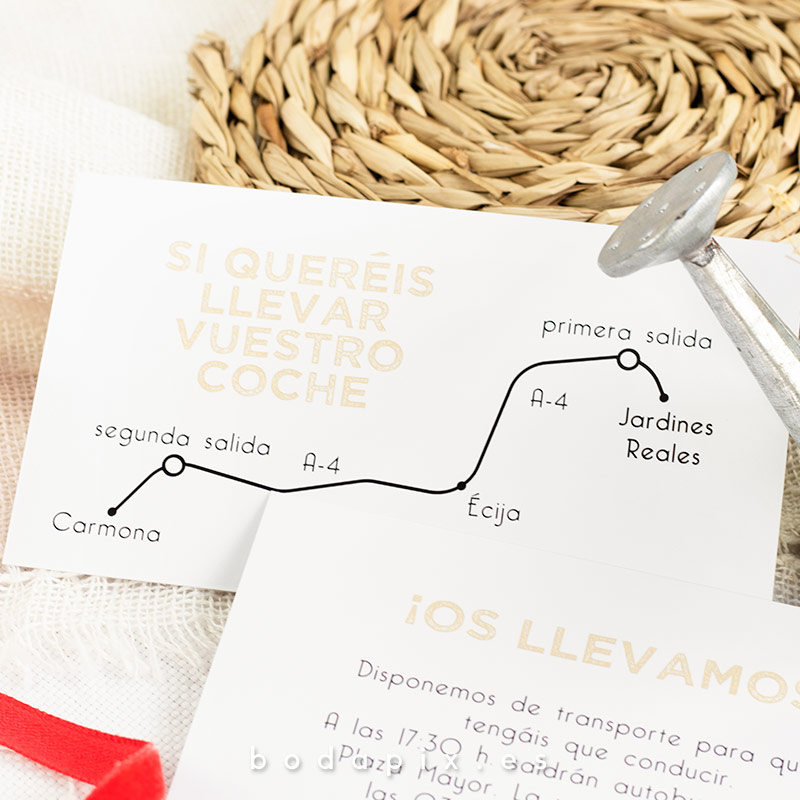 SI QUERÉIS
LLEVAR
VUESTRO
COCHE
primera salida
A-4
Jardines
Reales
segunda salida
A-4
Écija
Carmona
¡OS LLEVAMOS
Disponemos de transporte para qu
tengáis que conducir.
A las 17:30 h. saldrán autobu
Plaza Mayor. La
las
bodapix.es